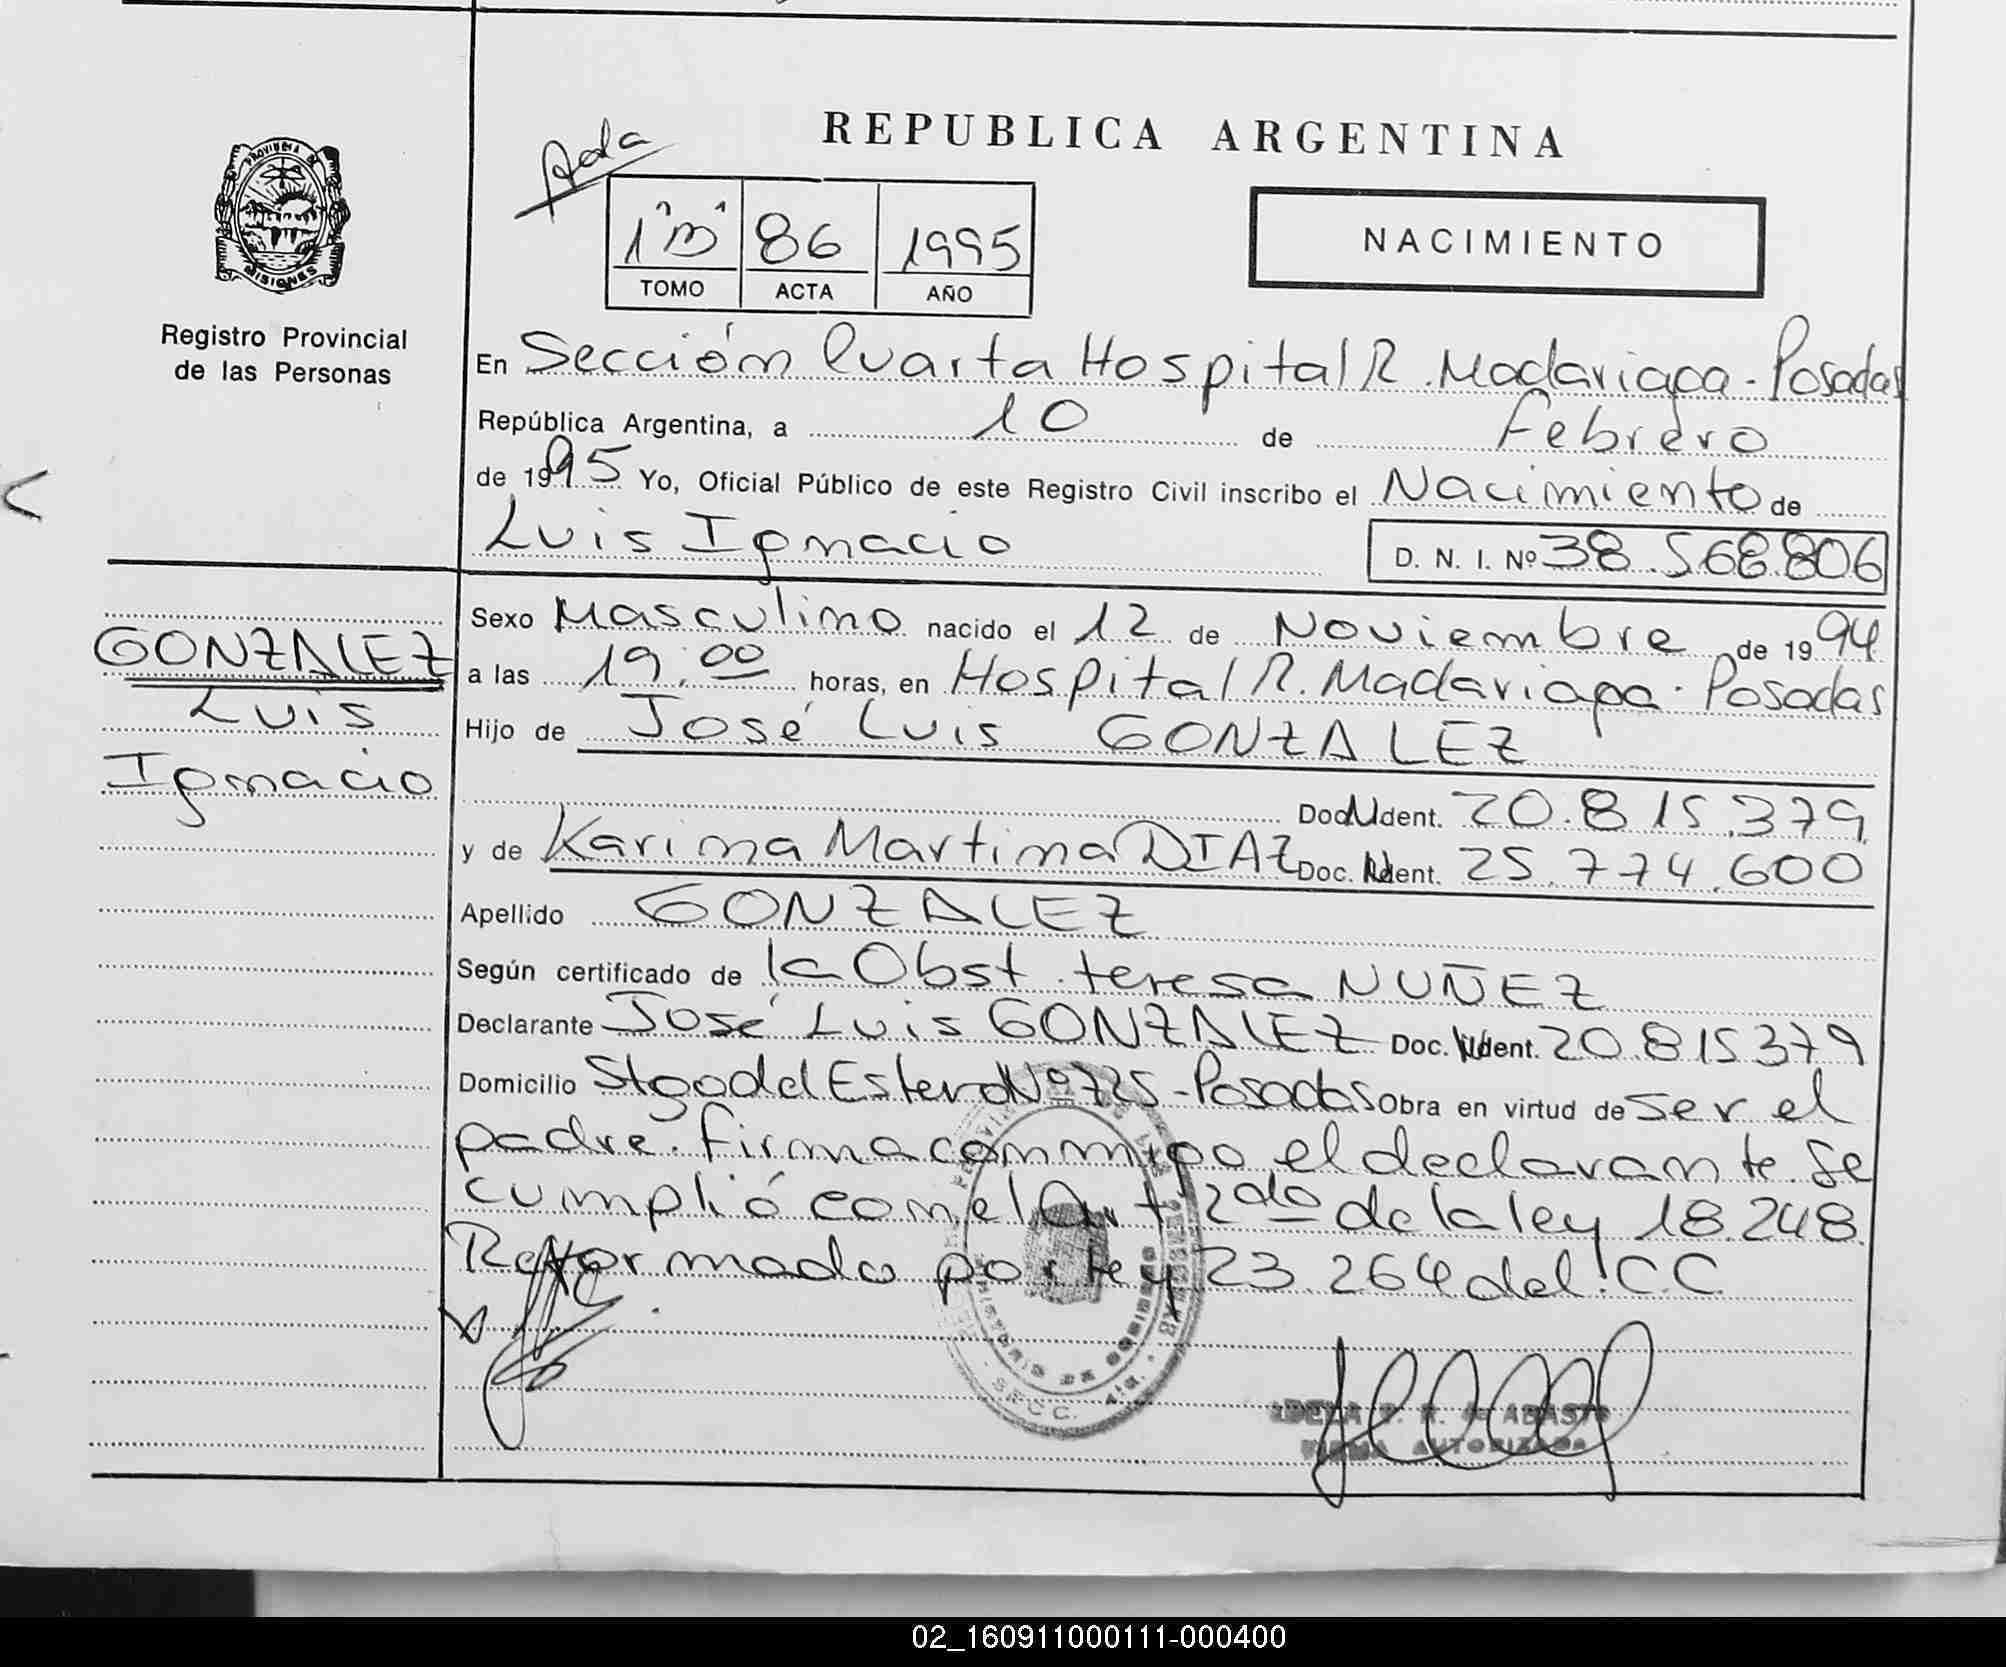 REPUBLICA ARGENTINA
Ada
1 "B" 86 1995
TOMO ACTA AÑO
NACIMIENTO
PROVINCIA DE
MISIONES
Registro Provincial
de las Personas
En Sección Cuarta Hospital R. Madariaga - Posadas
República Argentina, a 10 de Febrero
de 1995 Yo, Oficial Público de este Registro Civil inscribo el Nacimiento de
Luis Ignacio D. N. I. Nº 38.568.806
GONZALEZ
Luis
Ignacio
Sexo Masculino nacido el 12 de Noviembre de 1994
a las 19:00 horas, en Hospital R. Madariaga - Posadas
Hijo de José Luis GONZALEZ
Doc. Ident. 20.815.379
y de Karina Martina DIAZ Doc. Ident. 25.774.600
Apellido GONZALEZ
Según certificado de la Obst. teresa NUÑEZ
Declarante José Luis GONZALEZ Doc. Ident. 20.815379
Domicilio Stgo del Estero Nº 725 - Posadas Obra en virtud de ser el
padre. firma conmigo el declarante. Se
cumplió con el Art 2do de la ley 18.248.
Reformado por ley 23.264 del C.C.
SECC.
FIRMA AUTORIZADA
02_160911000111-000400